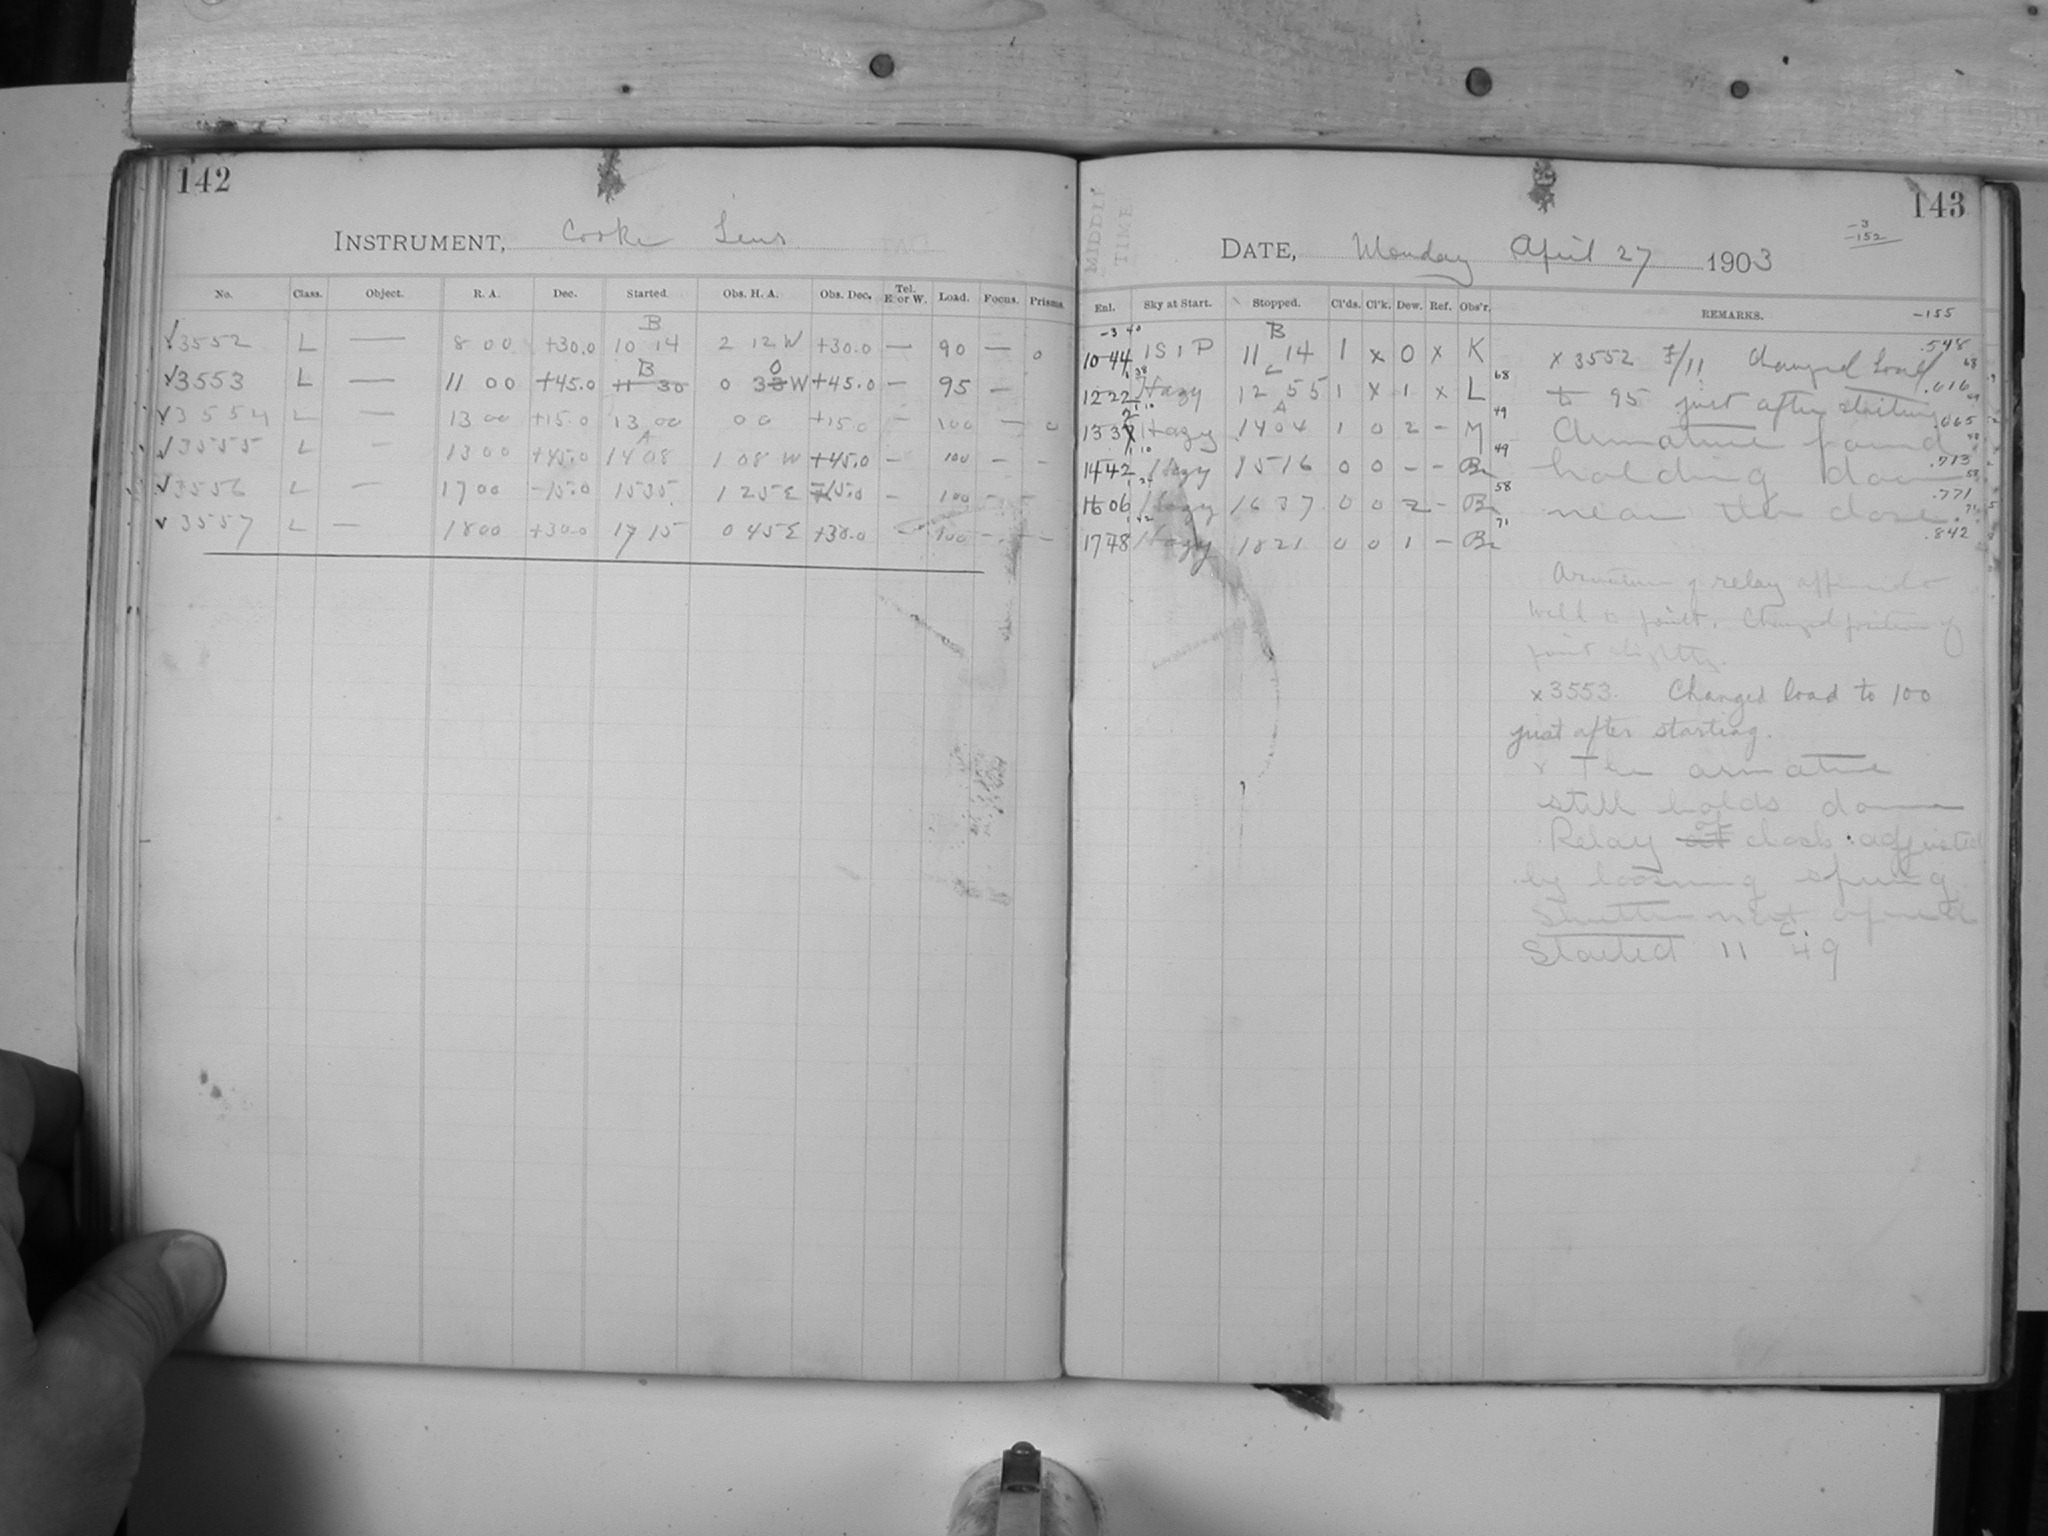 142
INSTRUMENT, Cooke Lens
No. Class. Object. R. A. Dec. Started. Obs. H. A. Obs. Dec. Tel. E. or W. Load. Focus. Prisms.
√3552 L — 8 00 +30.0 B 10 14 2 12 W +30.0 — 90 — 0
√3553 L — 11 00 +45.0 B 11 30 0 33 W +45.0 — 95 —
√3554 L — 13 00 +15.0 13 00 0 0 +15.0 — 100 — 0
√3555 L — 13 00 +45.0 A 14 08 1 08 W +45.0 — 100 — —
√3556 L — 17 00 -15.0 15 35 1 25 E -15.0 — 100 — —
√3557 L — 18 00 +30.0 17 15 0 45 E +30.0 — 100 — —
143
MIDDLE TIME
-3
-152
DATE, Monday April 27 1903
Enl. Sky at Start. Stopped. Cl'ds. Cl'k. Dew. Ref. Obs'r. REMARKS. -155
-3 40
10 44 1S1P B 11 14 1 x 0 x K
12 22 Hazy 12 55 1 x 1 x L
13 32 Hazy 14 04 1 0 2 - M
14 42 Hazy 15 16 0 0 - - Br
16 06 Hazy 16 37 0 0 2 - Br
17 48 Hazy 18 21 0 0 1 - Br
x 3552 F/11 Changed Load .548
to 95 just after starting .616
Armature found .665
holding down .713
near the close. .771
.842
Armature of relay appeared to
weld to point. Changed position of
point slightly.
x 3553. Changed load to 100
just after starting.
x The armature
still holds down
Relay at clock adjusted
by loosening spring
Shutter not opened
Started 11 49